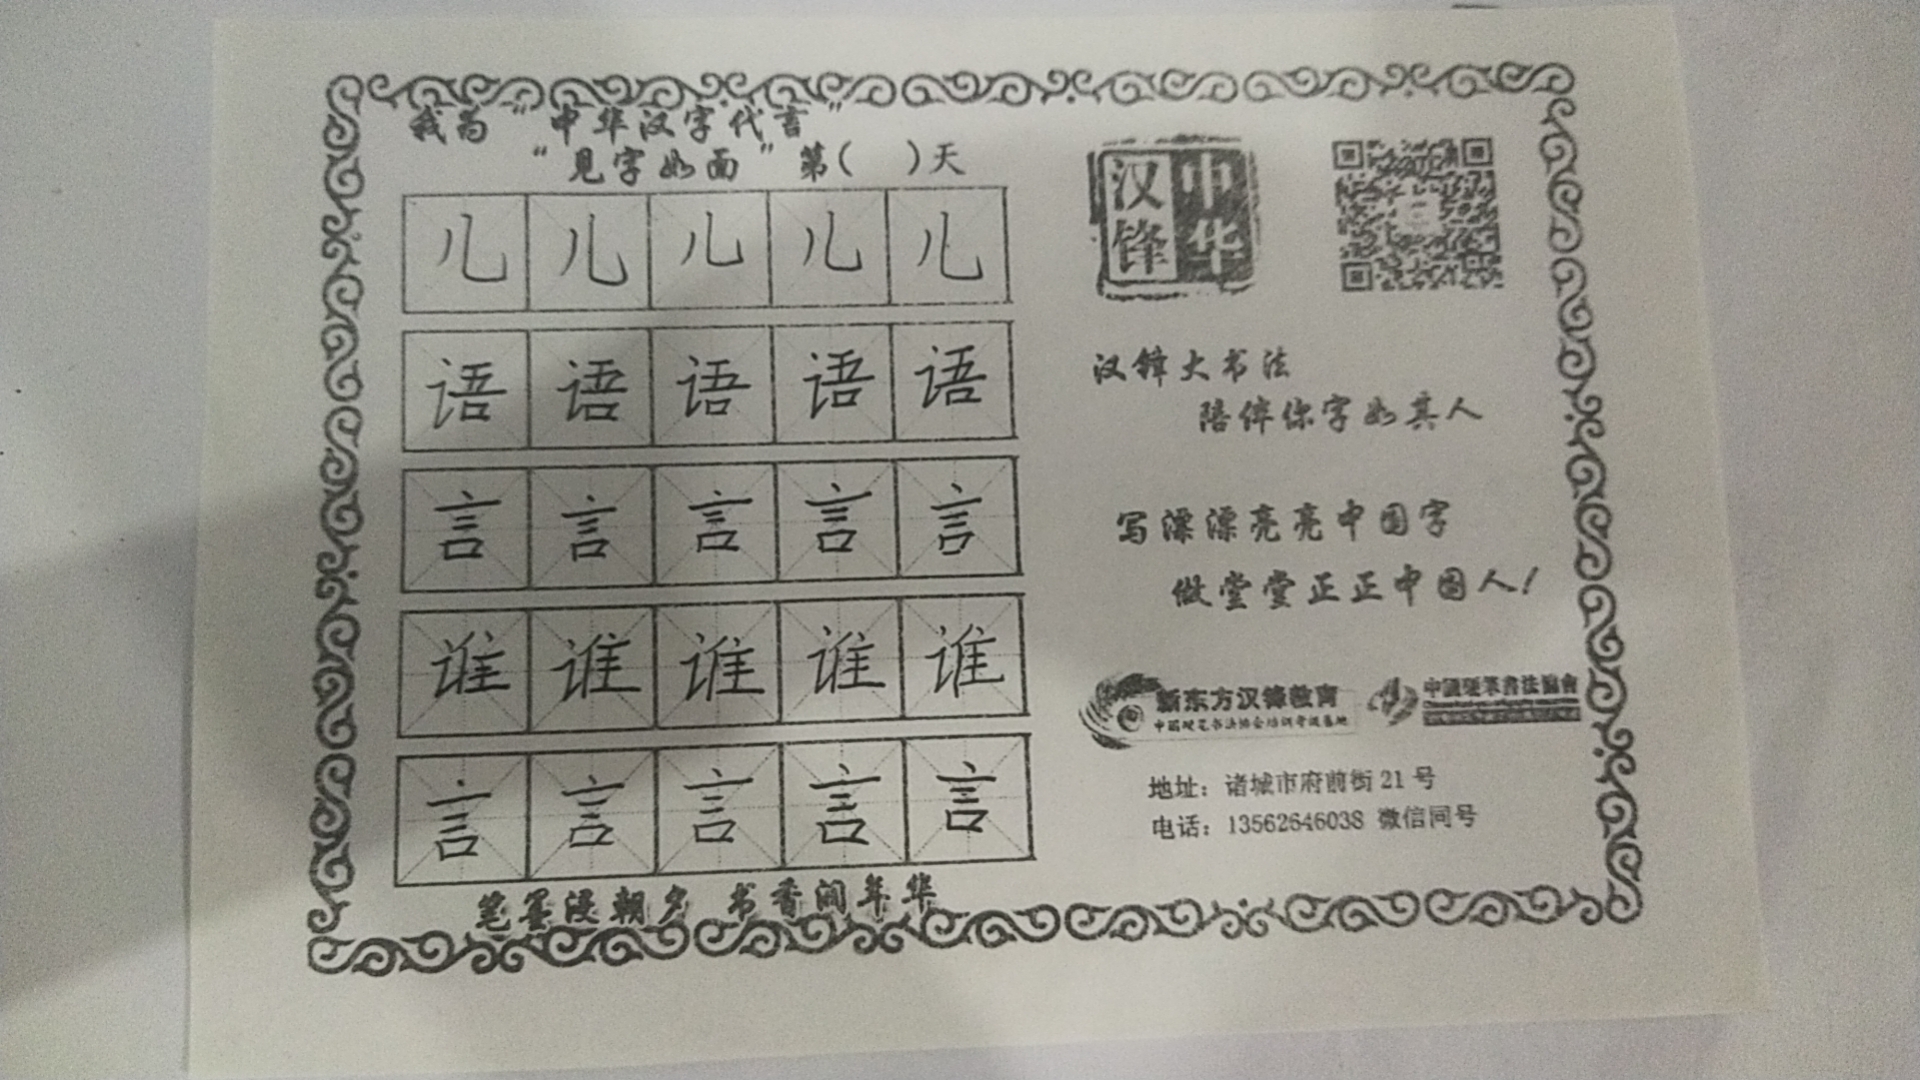 我为“中华汉字代言”
“见字如面”第( )天
儿 儿 儿 儿 儿
语 语 语 语 语
言 言 言 言 言
谁 谁 谁 谁 谁
言 言 言 言 言
笔墨浸朝夕 书香润年华
汉锋
中华
汉锋大书法
陪伴你字如其人
写漂漂亮亮中国字
做堂堂正正中国人!
新东方汉锋教育
中国硬笔书法协会培训考级基地
中国硬筆書法協會
地址：诸城市府前街21号
电话：13562646038 微信同号